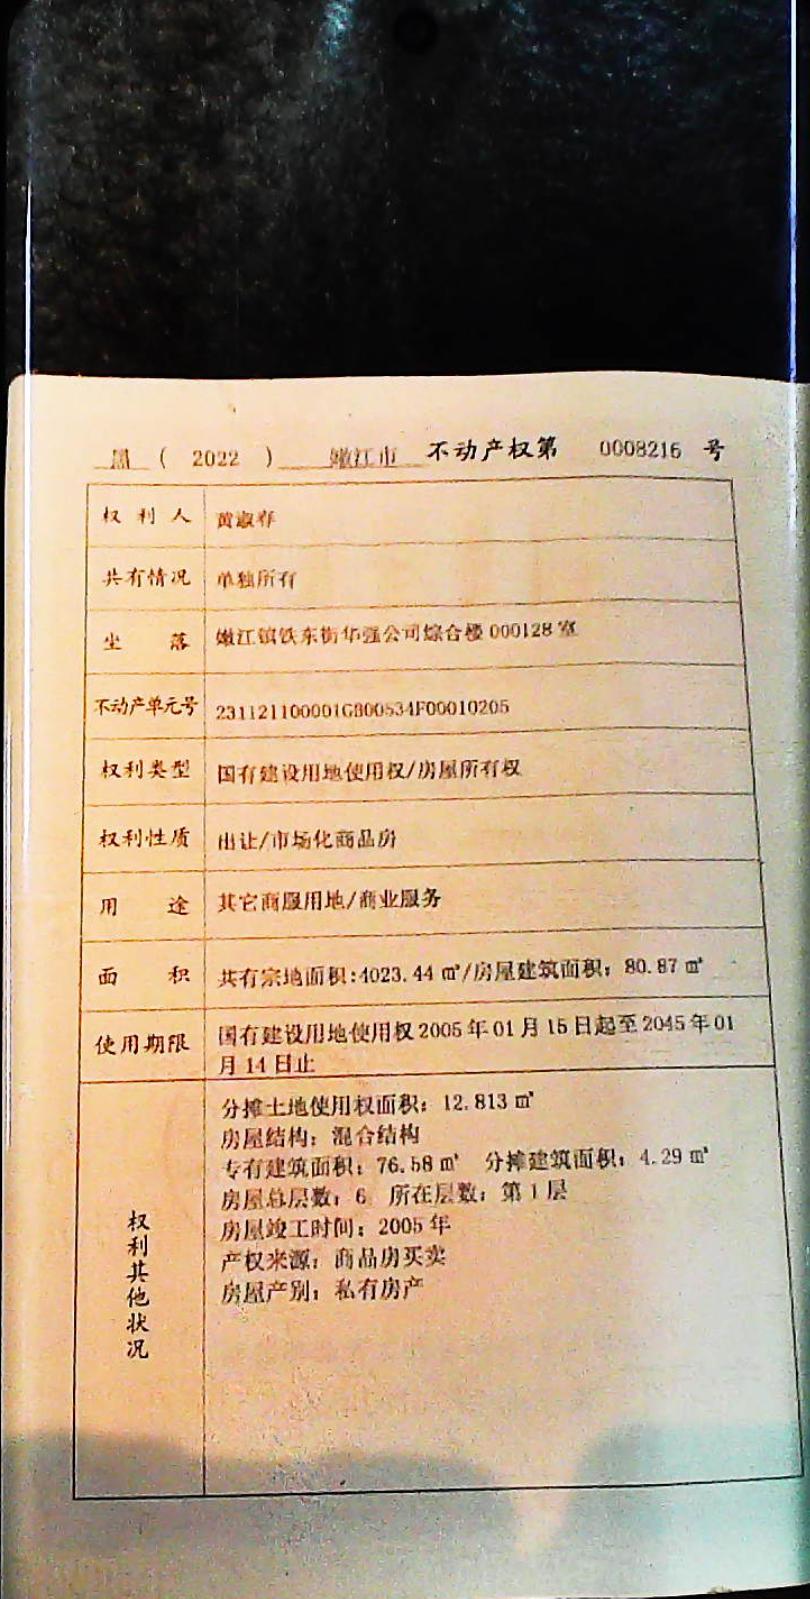 黑 ( 2022 ) 嫩江市 不动产权第 0008216 号
权利人 黄淑春
共有情况 单独所有
坐落 嫩江镇铁东街华强公司综合楼 000128 室
不动产单元号 231121100001GB00534F00010205
权利类型 国有建设用地使用权/房屋所有权
权利性质 出让/市场化商品房
用途 其它商服用地/商业服务
面积 共有宗地面积:4023.44 ㎡/房屋建筑面积：80.87 ㎡
使用期限 国有建设用地使用权 2005 年 01 月 15 日起至 2045 年 01
月 14 日止
权利其他状况
分摊土地使用权面积：12.813 ㎡
房屋结构：混合结构
专有建筑面积：76.58 ㎡ 分摊建筑面积：4.29 ㎡
房屋总层数：6 所在层数：第 1 层
房屋竣工时间：2005 年
产权来源：商品房买卖
房屋产别：私有房产